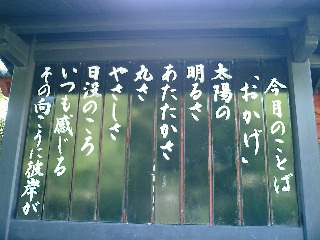 今月のことば
「おかげ」
太陽の
明るさ
あたたかさ
丸さ
やさしさ
日没のころ
いつも感じる
その向こうに彼岸が